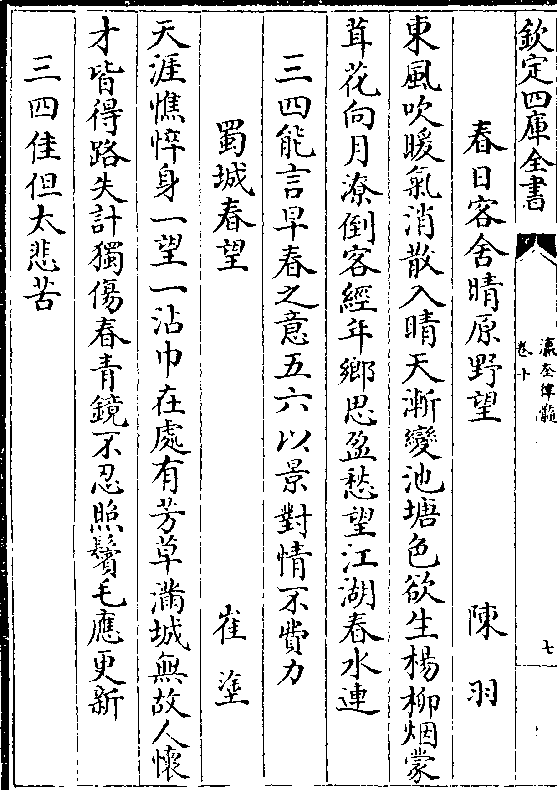 欽定四庫全書
瀛奎律髓
卷十
七
春日客舍晴原野望 陳羽
東風吹暖氣消散入晴天漸變池塘色欲生楊柳烟蒙
茸花向月潦倒客經年鄉思盈愁望江湖春水連
三四能言早春之意五六以景對情不費力
蜀城春望 崔塗
天涯憔悴身一望一沾巾在處有芳草滿城無故人懷
才皆得路失計獨傷春青鏡不忍照鬢毛應更新
三四佳但太悲苦